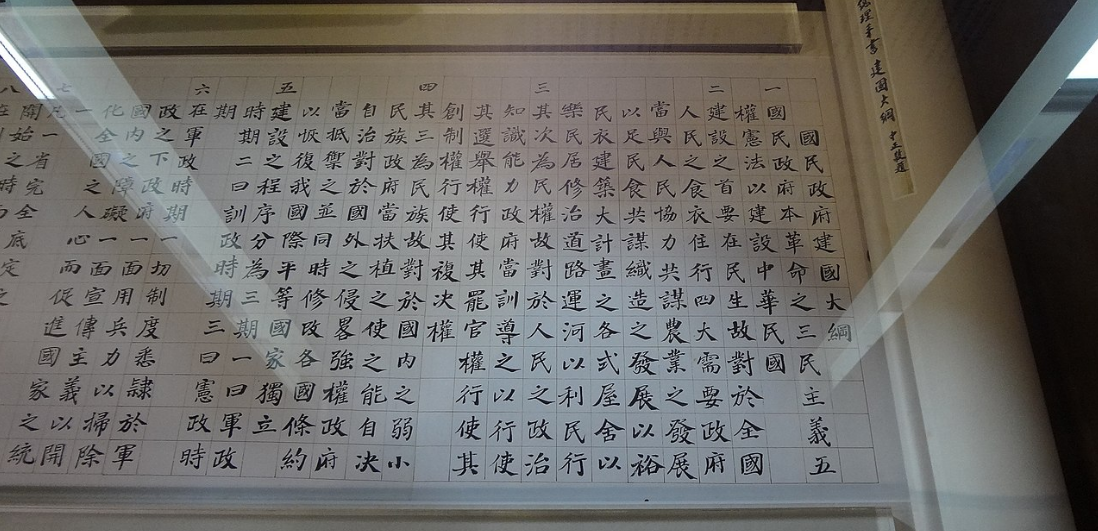 總理手書 建國大綱 中正敬題
國民政府建國大綱
一 國民政府本革命之三民主義五
權憲法以建設中華民國
二 建設之首要在民生故對於全國
人民之食衣住行四大需要政府
當與人民協力共謀農業之發展
以足民食共謀織造之發展以裕
民衣建築大計畫之各式屋舍以
樂民居修治道路運河以利民行
三 其次為民權故對於人民之政治
知識能力政府當訓導之以行使
其選舉權行使其罷官權行使其
創制權行使其複決權
四 其三為民族故對於國內之弱小
民族政府當扶植之使之能自決
自治對於國外之侵畧強權政府
當抵禦之並同時修改各國條約
以恢復我國際平等國家獨立
五 建設之程序分為三期一曰軍政
時期二曰訓政時期三曰憲政時
期
六 在軍政時期一切制度悉隸於軍
政之下政府一面用兵力以掃除
國內之障礙一面宣傳主義以開
化全國之人心而促進國家之統
一
七 凡一省完全底定之
開始之時而
八 在